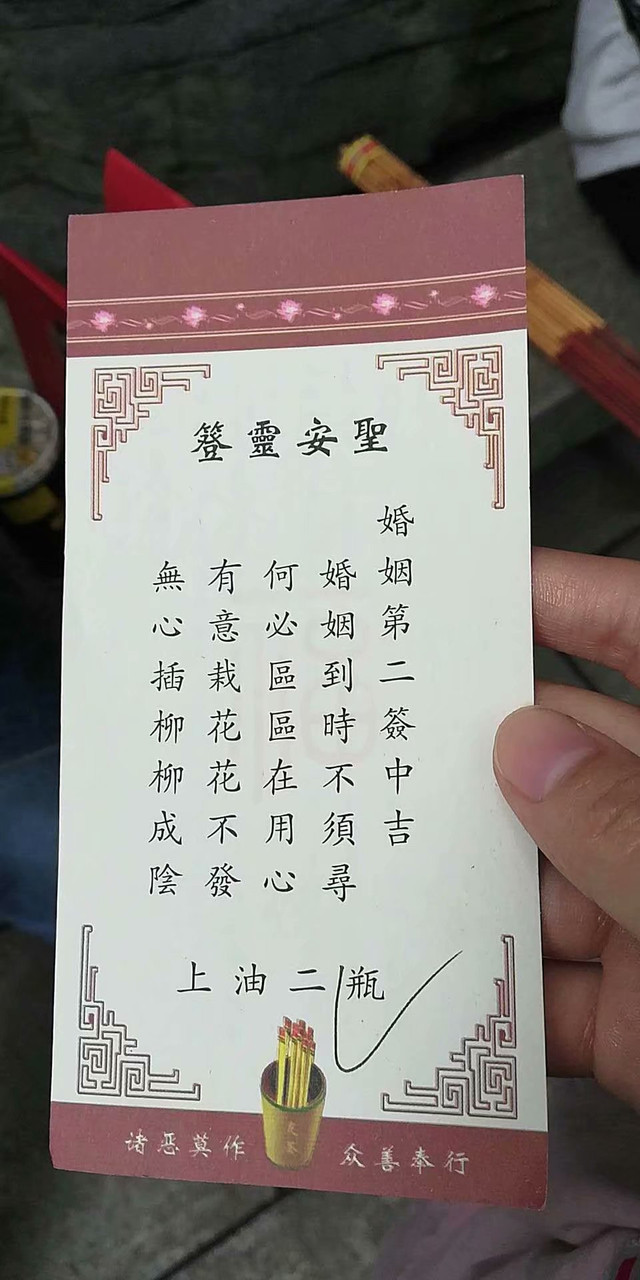 聖安靈簽
婚姻第二簽中吉
婚姻到時不須尋
何必區區在用心
有意栽花花不發
無心插柳柳成陰
上油二瓶
诸恶莫作
众善奉行